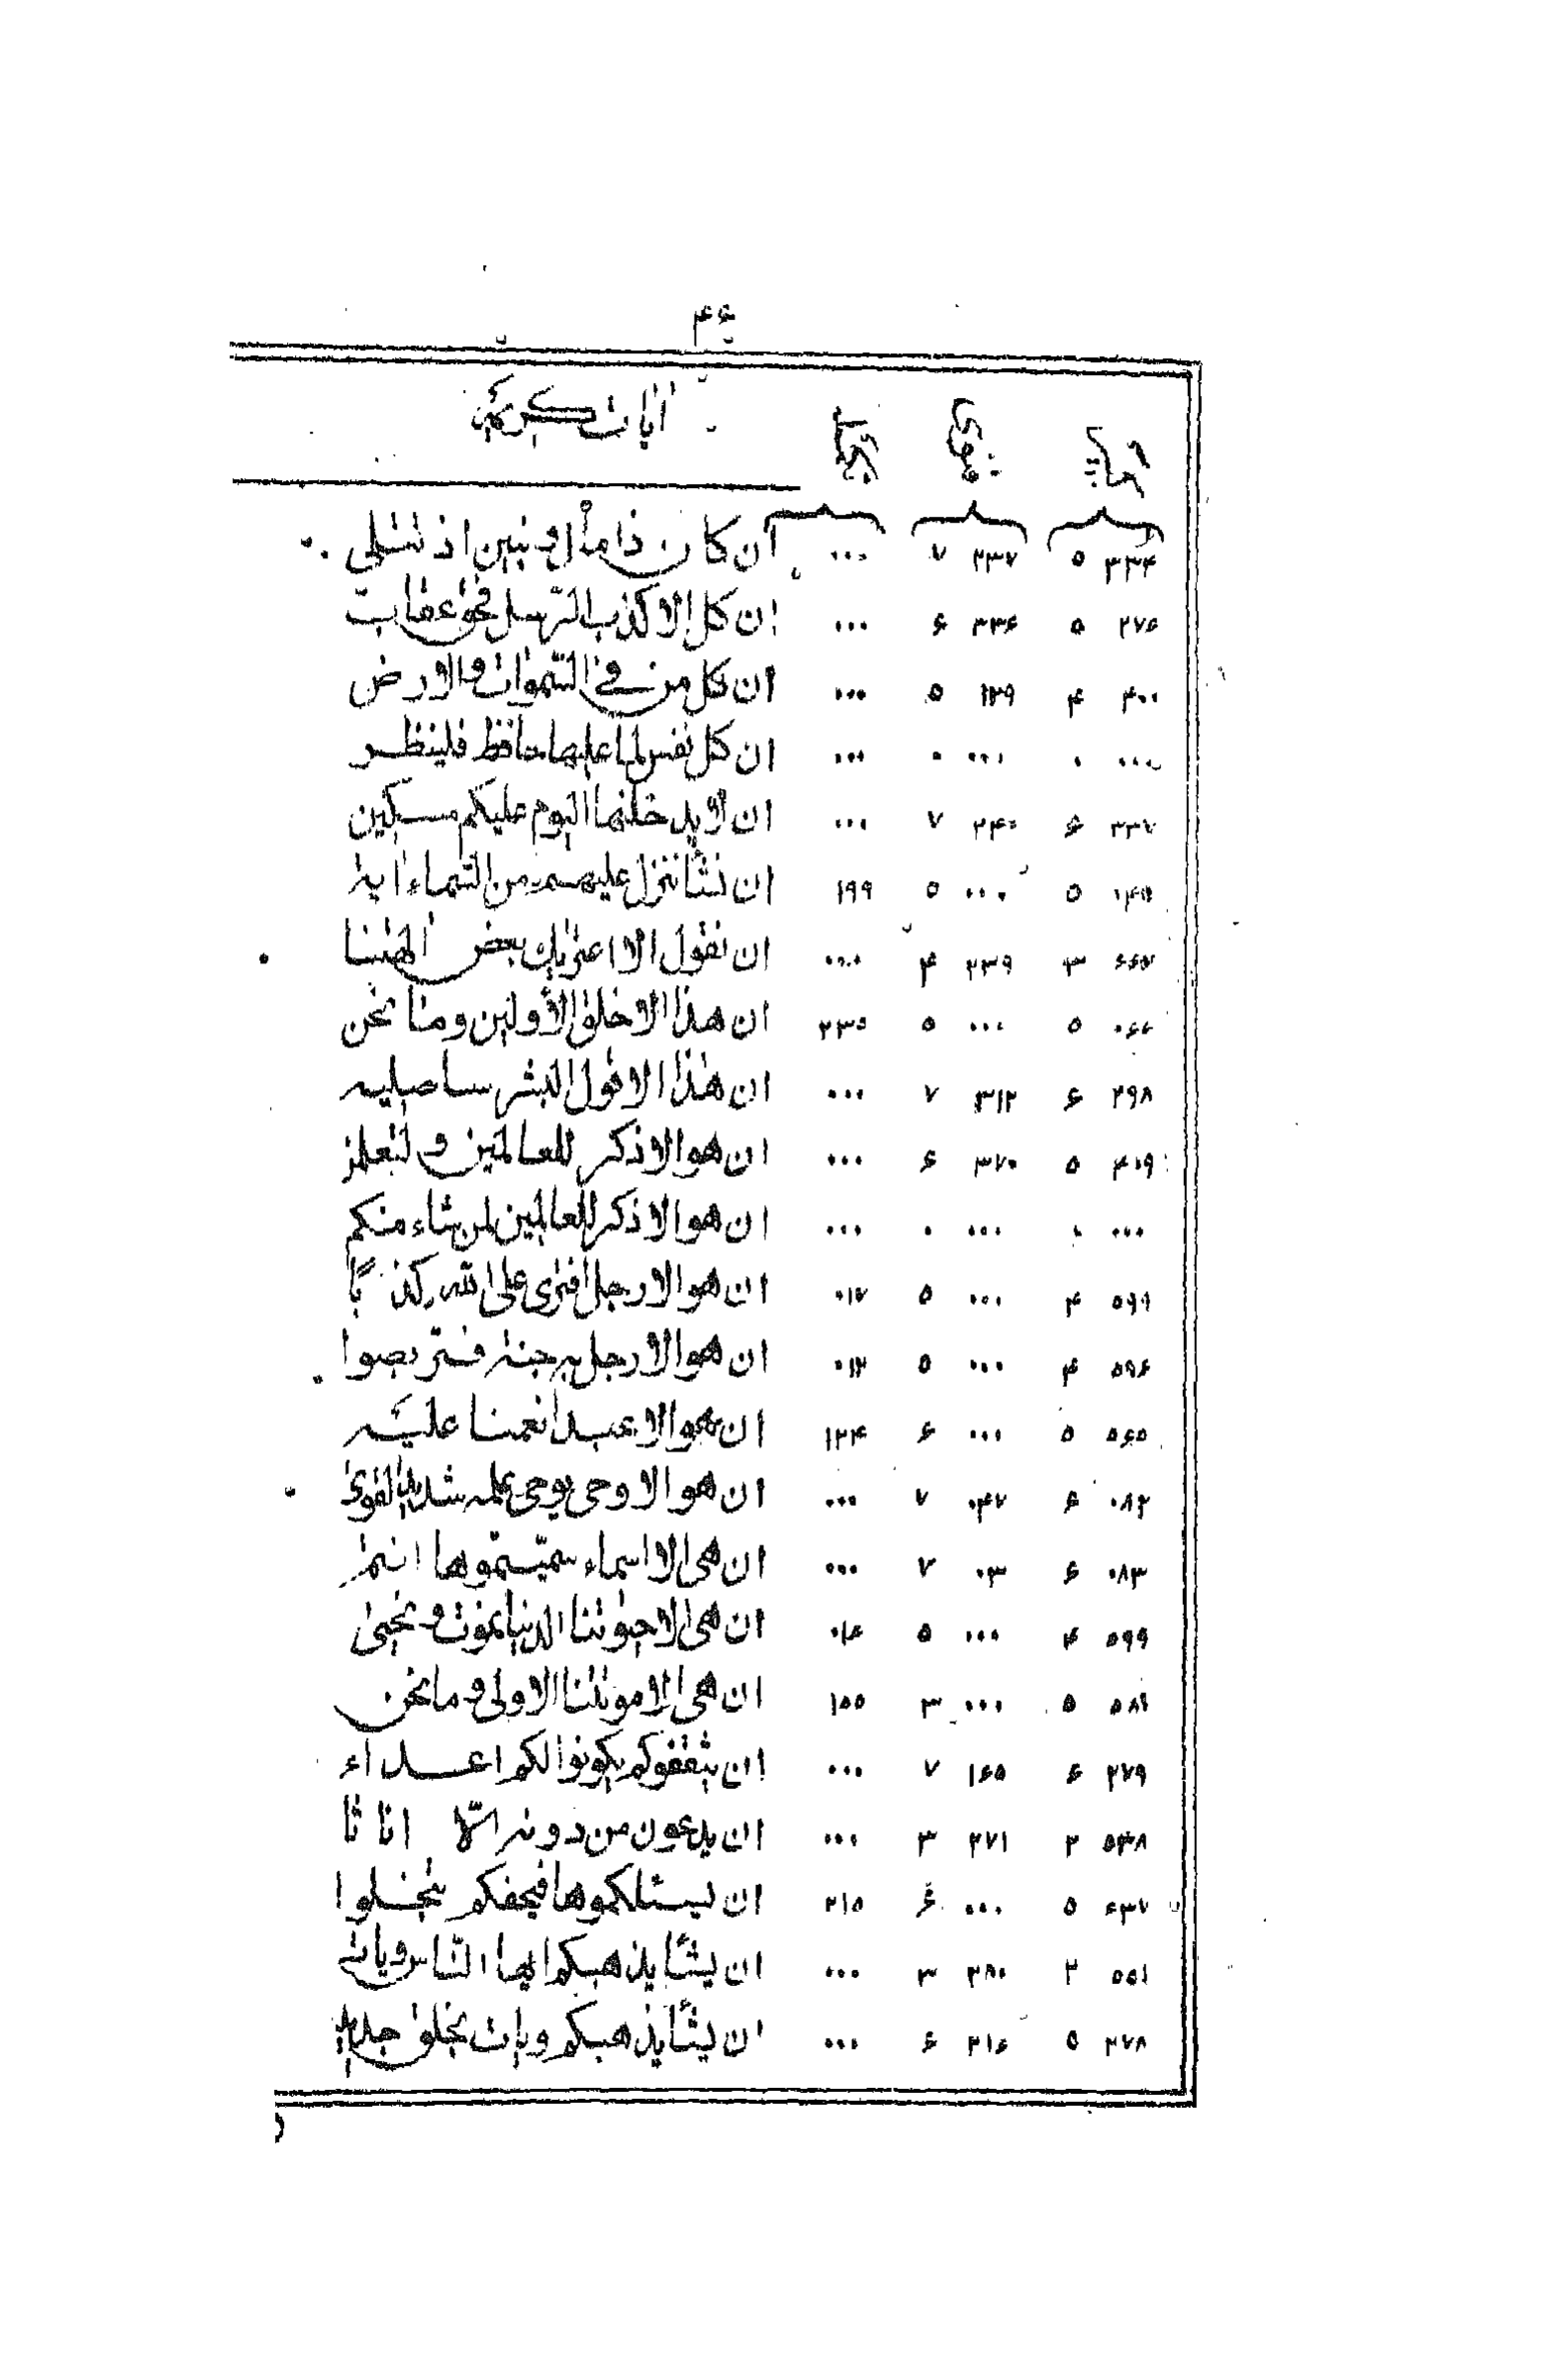 ۴۶
آیات کریمه
۳۳۴ ۵ ۲۳۷ ۷ ۰۰۰ ان کان ذا مال و بنین اذ تتلی
۲۷۶ ۵ ۳۳۶ ۶ ۰۰۰ ان کل الا کذب الرسل فحق عقاب
۴۰۰ ۴ ۱۳۹ ۵ ۰۰۰ ان کل من فی السموات والارض
۰۰۰ ۰ ۰۰۰ ۰ ۰۰۰ ان کل نفس لما علیها حافظ فلینظر
۳۳۷ ۶ ۲۴۰ ۷ ۰۰۰ ان لا یدخلنها الیوم علیکم مسکین
۱۴۵ ۵ ۰۰۰ ۵ ۱۹۹ ان نشأ ننزل علیهم من السماء ایة
۳ ۲۳۹ ۴ ۰۰۰ ان نقول الا اعتریک بعض الهتنا
۰۶۶ ۵ ۰۰۰ ۵ ۲۳۵ ان هذا الا خلق الأولین وما نحن
۲۹۸ ۶ ۳۱۲ ۷ ۰۰۰ ان هذا الا قول البشر ساصلیه
۴۰۹ ۵ ۳۷۰ ۶ ۰۰۰ ان هو الا ذکر للعالمین و لتعلمن
۰۰۰ ۰ ۰۰۰ ۰ ۰۰۰ ان هو الا ذکر للعالمین لمن شاء منکم
۵۹۹ ۴ ۰۰۰ ۵ ۰۱۷ ان هو الا رجل افتری علی الله کذبًا
۵۹۶ ۴ ۰۰۰ ۵ ۰۱۲ ان هو الا رجل به جنة فتربصوا
۵۶۵ ۵ ۰۰۰ ۶ ۱۲۴ ان هو الا عبد انعمنا علیه
۰۸۲ ۶ ۰۴۷ ۷ ۰۰۰ ان هو الا وحی یوحی علمه شدید القوی
۰۸۳ ۶ ۰۳ ۷ ۰۰۰ ان هی الا اسماء سمیتموها انتم
۵۹۹ ۴ ۰۰۰ ۵ ۰۱۶ ان هی الا حیوتنا الدنیا نموت و نحیی
۵۸۱ ۵ ۰۰۰ ۳ ۱۵۵ ان هی الا موتتنا الاولی و ما نحن
۲۷۹ ۶ ۱۶۵ ۷ ۰۰۰ ان یثقفوکم یکونوا لکم اعداء
۵۳۸ ۲ ۲۷۱ ۳ ۰۰۰ ان یدعون من دونه الّا اناثا
۶۳۷ ۵ ۰۰۰ ۶ ۲۱۵ ان یسئلکموها فیحفکم تبخلوا
۵۵۱ ۲ ۲۸۰ ۳ ۰۰۰ ان یشأ یذهبکم ایها الناس ویات
۲۷۸ ۵ ۲۱۶ ۶ ۰۰۰ ان یشأ یذهبکم ویات بخلق جدید